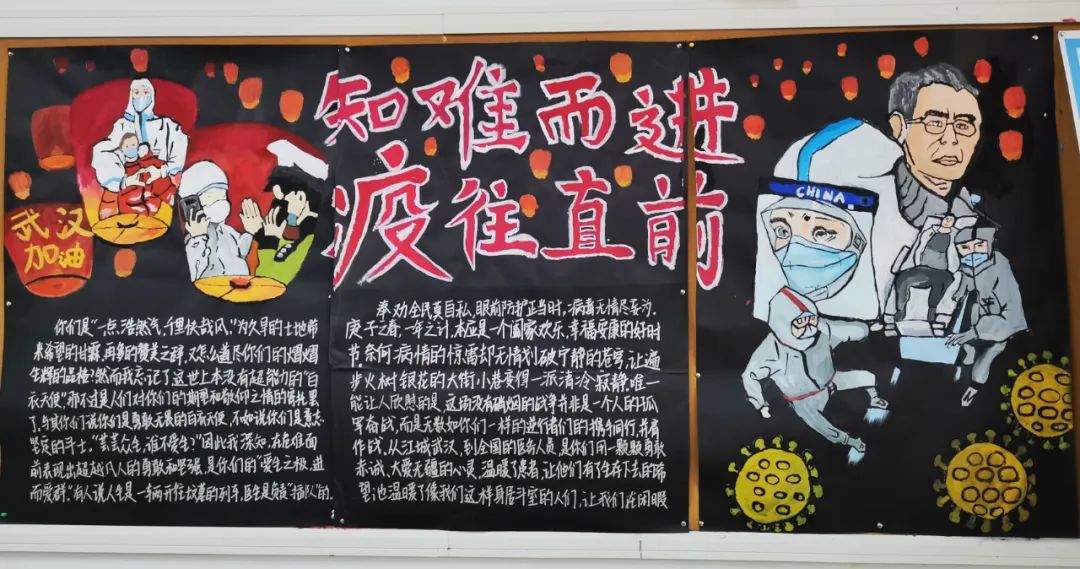 知难而进
疫往直前
武汉
加油
CHINA
你们是“一点浩然气,千里快哉风。”为久旱的土地带
来希望的甘霖,再多的赞美之辞,又怎么道尽你们的熠熠
生辉的品格!然而我忘记了这世上本没有超能力的“白
衣天使”,那不过是人们对你们的期望和敬仰之情的寄托罢
了,与其你们说你们是勇敢无畏的白衣天使,不如说你们是意志
坚定的斗士。“芸芸众生,谁不爱生?”因此我深知,在在
前表现出超越凡人的勇敢和坚强,是你们的“爱生之极,进
而爱群。”有人说人生是一车两开往坟墓的列车,医生是负责“插队”的.
奉劝全民莫自私,眼前防护正当时,病毒无情尽
庚子之春,一年之计,本应是一个阖家欢乐,幸福安康的好时
节,奈何病情的惊雷却无情划破宁静的苍穹,让遍
步火树银花的大街小巷变得一派清冷寂静,唯一
能让人欣慰的是,这场没有硝烟的战争并非是一个人的孤
军奋战,而是无数如你们一样的逆行者们的携手同行,并肩
作战,从江城武汉,到全国的医务人员,是你们用一颗颗勇敢
赤诚、大爱无疆的心灵,温暖了患者,让他们有了生存下去的希
望;也温暖了像我们这样身居斗室的人们,让我们在闲暇